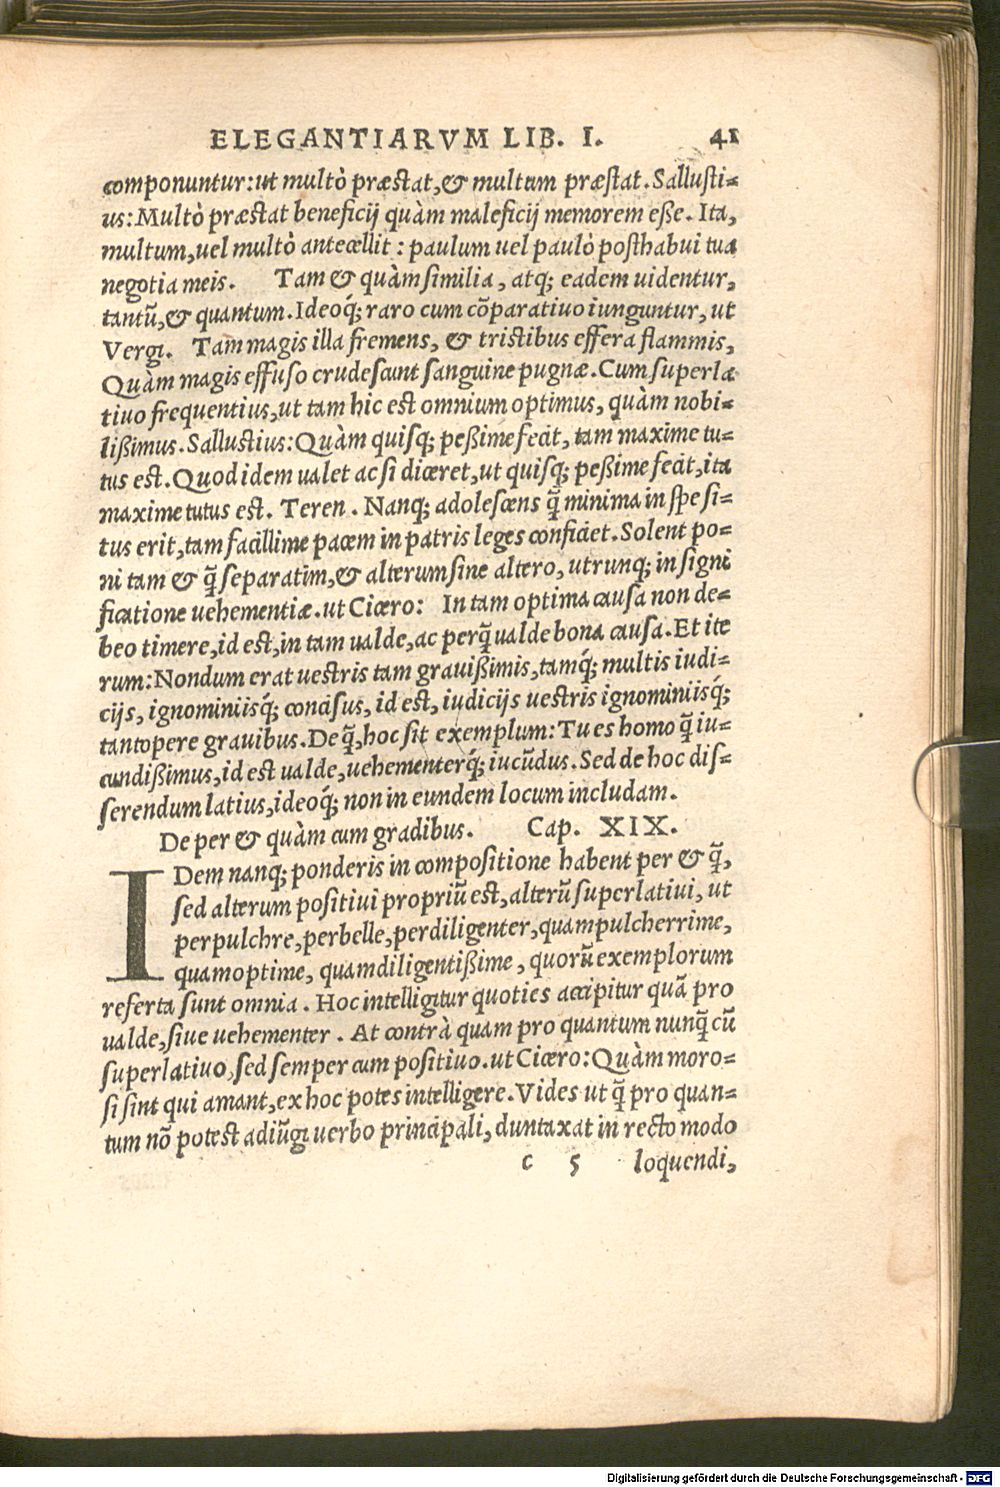 ELEGANTIARVM LIB. I. 41
componuntur: ut multò præstat, & multum præstat. Sallusti=
us: Multò præstat beneficij quàm maleficij memorem eße. Ita,
multum, uel multò antecellit: paulum uel paulò posthabui tua
negotia meis. Tam & quàm similia, atq; eadem uidentur,
tantũ, & quantum. Ideoq́; raro cum cõparatiuo iunguntur, ut
Vergi. Tam magis illa fremens, & tristibus effera flammis,
Quàm magis effuso crudescunt sanguine pugnæ. Cum superla
tiuo frequentius, ut tam hic est omnium optimus, quàm nobi=
lißimus. Sallustius: Quàm quisq; peßime fecit, tam maxime tu=
tus est. Quod idem ualet ac si diceret, ut quisq; peßime fecit, ita
maxime tutus est. Teren. Nanq; adolescens q̃ minima in spe si=
tus erit, tam facillime pacem in patris leges conficiet. Solent po=
ni tam & q̃ separatim, & alterum sine altero, utrunq; in signi
ficatione uehementiæ. ut Cicero: In tam optima causa non de=
beo timere, id est, in tam ualde, ac perq̃ ualde bona causa. Et ite
rum: Nondum erat uestris tam grauißimis, tamq́; multis iudi=
cijs, ignominiisq́; concisus, id est, iudicijs uestris ignominiisq́;
tantopere grauibus. De q̃, hoc sit exemplum: Tu es homo q̃ iu=
cundißimus, id est ualde, uehementerq́; iucũdus. Sed de hoc dis=
serendum latius, ideoq́; non in eundem locum includam.
De per & quàm cum gradibus. Cap. XIX.
IDem nanq; ponderis in compositione habent per & q̃,
sed alterum positiui propriũ est, alterũ superlatiui, ut
perpulchre, perbelle, perdiligenter, quampulcherrime,
quamoptime, quamdiligentißime, quorũ exemplorum
referta sunt omnia. Hoc intelligitur quoties accipitur quã pro
ualde, siue uehementer. At contrà quam pro quantum nunq̃ cũ
superlatiuo, sed semper cum positiuo. ut Cicero: Quàm moro=
si sint qui amant, ex hoc potes intelligere. Vides ut q̃ pro quan=
tum nõ potest adiũgi uerbo principali, duntaxat in recto modo
c 5 loquendi,
Digitalisierung gefördert durch die Deutsche Forschungsgemeinschaft - DFG